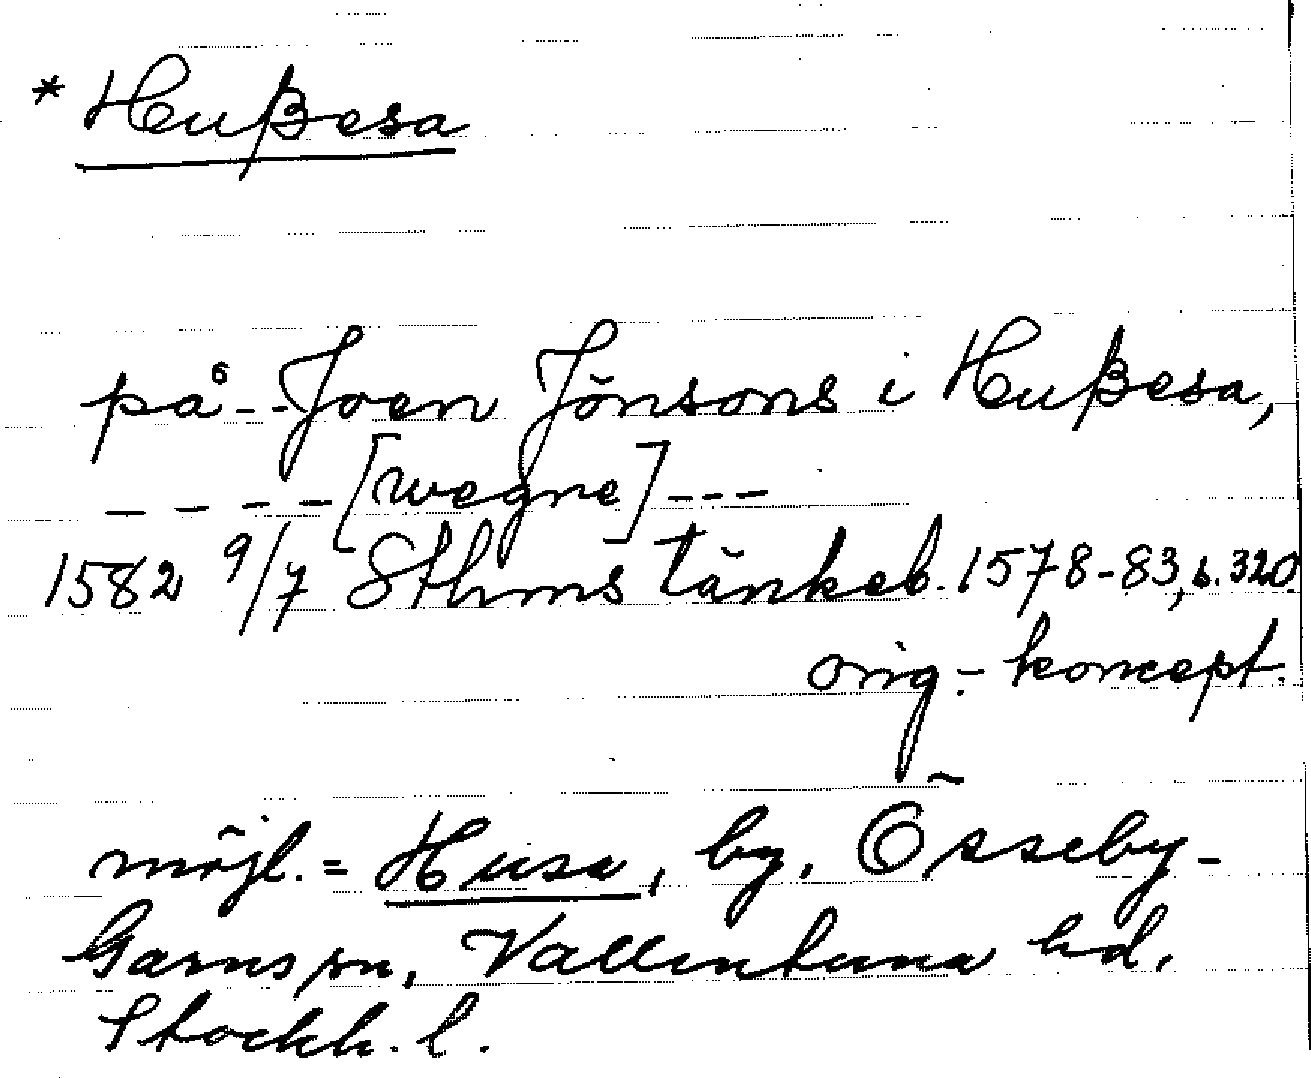 * Hußesa
på - - Joen Jönsons i Hußesa,
– – – – [wegne] - - -
1582 9/7 Sthms tänkeb. 1578-83, s. 320
orig.- koncept.
möjl. = Husa, by, Össeby-
Garns sn, Vallentuna hd,
Stockh. l.